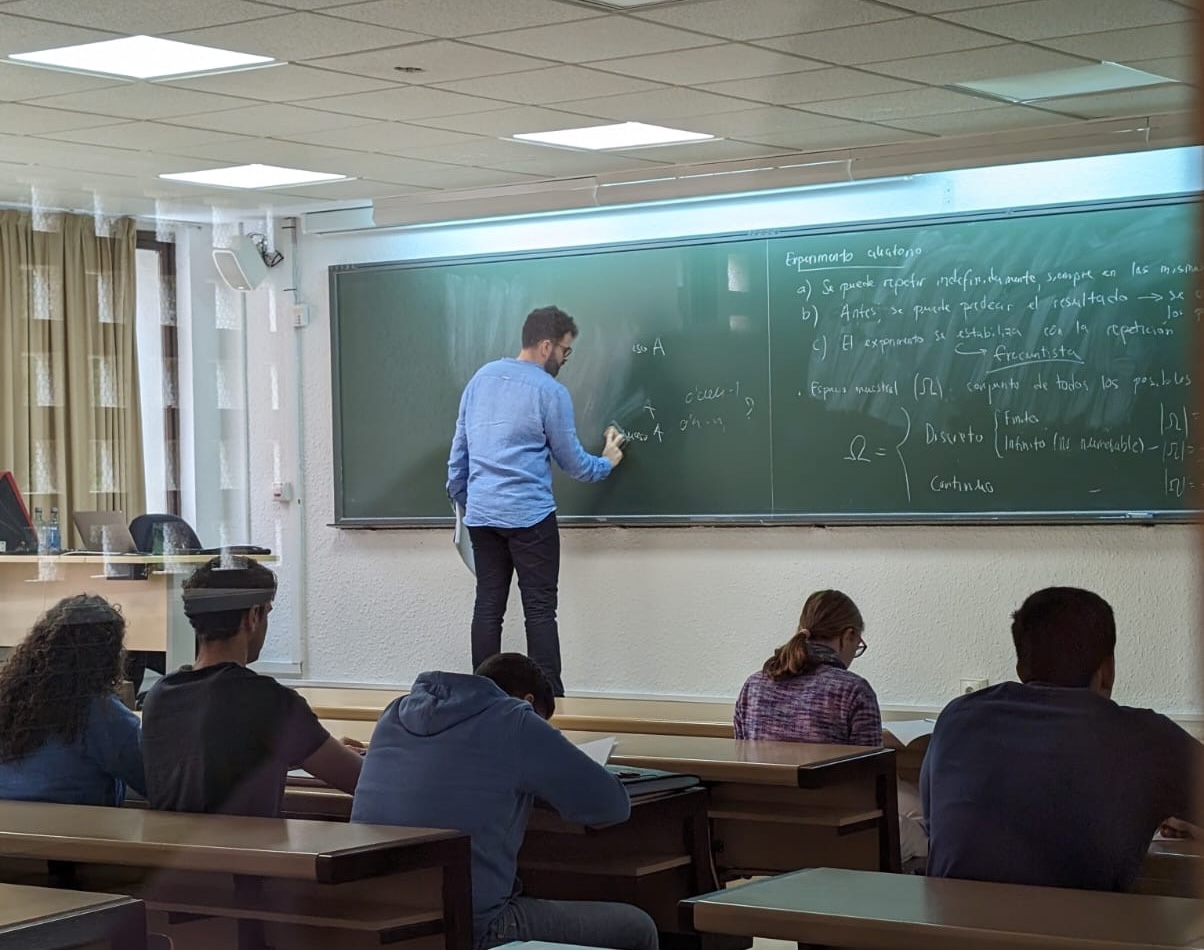 A
A
A ?
Experimento aleatorio
a) Se puede repetir indefinidamente, siempre en las mism
b) Antes, se puede predecir el resultado → se
los
c) El experimento se estabiliza con la repetición
↳ frecuentista
. Espacio muestral (Ω): conjunto de todos los posibles
Ω = { Discreto { Finito |Ω|
Infinito (numerable) - |Ω| =
Continuo - |Ω| =